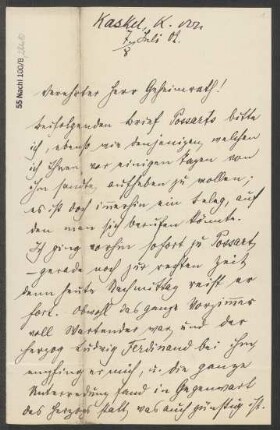 55 Nachl 100/B
Kaskel, K. von
7. Juli 01.
Verehrter Herr Geheimrath!
Beifolgenden Brief Possarts bitte
ich, ebenso wie denjenigen, welchen
ich Ihnen vor einigen Tagen von
ihm sandte, aufheben zu wollen;
es ist doch immerhin ein Beleg, auf
den man sich berufen könnte.
Ich ging vorhin sofort zu Possart
– gerade noch zur rechten Zeit
denn heute Nachmittag reist er
fort. Obwohl das ganze Vorzimmer
voll Wartender war und der
Herzog Ludwig Ferdinand bei ihm,
empfing er mich, u. die ganze
Unterredung fand in Gegenwart
des Herzogs statt, was auch günstig ist.